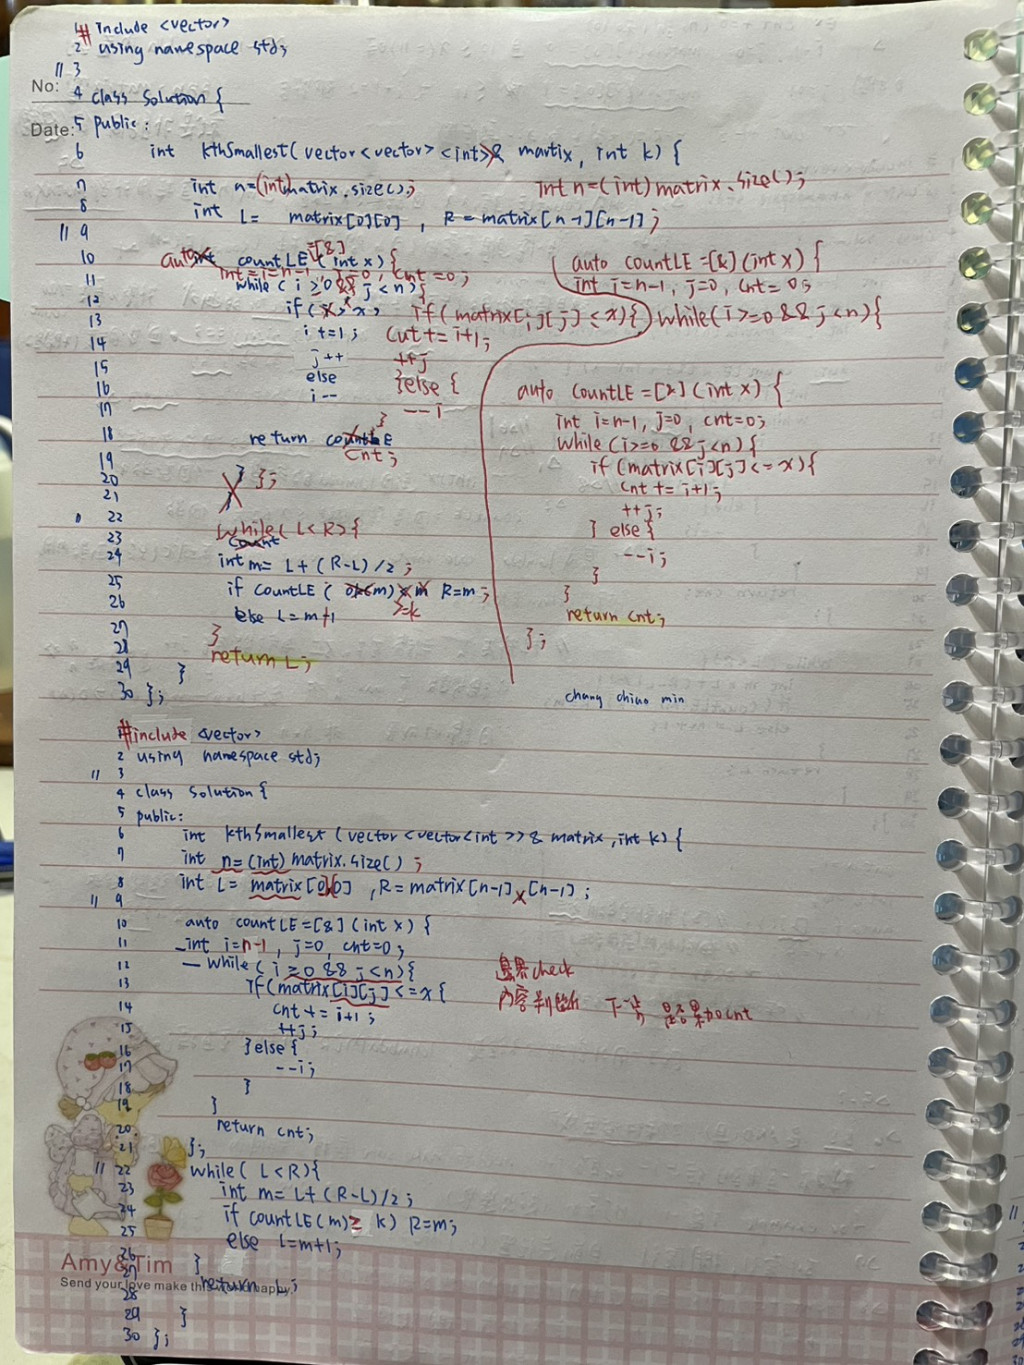 1 # include <vector>
2 using namespace std;
// 3
No:
4 class Solution {
Date:
5 public:
6 int kthSmallest( vector<vector> <int>& martix, int k) {
7 int n=(int)matrix.size(); int n=(int)matrix.size();
8 int L= matrix[0][0] , R=matrix[n-1][n-1];
// 9
10 auto countLE =[&] (int x) {
11 int=i=n-1, j=0, cnt=0;
12 while( i ≥ 0 && j<n){
13 if( x if(matrix[i][j] ≤ x){
14 i+=1; cut += i+1;
15 j++ ++j
16 else }else {
17 i-- --i
}
18 return cnt;
19
20 } };
21
22
23 while( L<R){
24 int m= L+(R-L)/2;
25 if countLE( (m) >=k R=m;
26 else L=m+1
27 }
28 return L;
29 }
30 };
auto countLE =[&](int x) {
int i=n-1, j=0, cnt= 0;
while(i>=0 && j<n){
auto countLE =[&](int x) {
int i=n-1, j=0, cnt=0;
while(i>=0 && j<n){
if(matrix[i][j]<=x){
cnt += i+1;
++j;
} else {
--i;
}
}
return cnt;
};
chang chiao min
1 #include <vector>
2 using namespace std;
// 3
4 class Solution {
5 public:
6 int kthSmallest (vector<vector<int>>& matrix,int k){
7 int n=(int)matrix.size();
8 int L= matrix[0][0] ,R=matrix[n-1][n-1];
// 9
10 auto countLE=[&](int x){
11 int i=n-1, j=0, cnt=0;
12 while( i≥0 && j<n){ 邊界check
13 if(matrix[i][j]<=x{ 內容判斷 下一步 是否累加cnt
14 cnt += i+1;
15 ++j;
16 }else {
17 --i;
18 }
19 }
20 return cnt;
21 };
// 22 while( L<R){
23 int m= L+(R-L)/2;
24 if countLE(m)≥ k) R=m;
25 else L=m+1;
26 }
Amy&Tim
27
Send your love make this world happy.
28 return L;
29 }
30 };